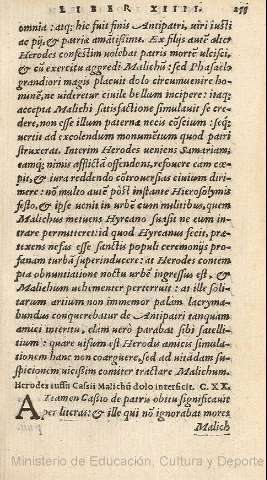 LIBER XIIII. 259
omnia: atq; hic fuit finis Antipatri, uiri iusti
ac pij, & patriæ amãtissimi. Ex filijs autẽ alter
Herodes confestim uolebat patris mortẽ ulcisci,
& cũ exercitu aggredi Malichũ: sed Phasaelo
grandiori magis placuit dolo circumuenire ho-
minẽ, ne uideretur ciuile bellum incipere: itaq;
accepta Malichi satisfactione simulauit se cre-
dere, non esse illum paternæ necis cõscium: seq;
uertit ad excolendum monumẽtum quod patri
struxerat. Interim Herodes ueniens Samariam,
eamq; nimis afflictã offendens, refouere eam cœ-
pit, & iura reddendo cõtrouersias ciuium diri-
mere: nõ multo autẽ pòst instante Hierosolymis
festo, & ipse uenit in urbẽ cum militibus, quem
Malichus metuens Hyrcano suasit ne eum in-
trare permitteret: id quod Hyrcanus fecit, præ-
texens nefas esse sanctis populi ceremonijs pro-
fanam turbã superinducere: at Herodes contem
pta obnuntiatione noctu urbẽ ingressus est, &
Malichum uehementer perterruit: at ille soli-
tarum artium non immemor palam lacryma-
bundus conquerebatur de Antipatri tanquam
amici interitu, clam uerò parabat sibi satelli-
tium: quare uisum est Herodis amicis simula-
tionem hanc non coarguere, sed ad uitãdam su-
spicionem uicissim comiter tractare Malichum.
Herodes iussu Cassij Malichũ dolo interficit. C. XX.
ATtamen Cassio de patris obitu significauit
per literas: & ille qui nõ ignorabat mores
Malich
Ministerio de Educación, Cultura y Deporte